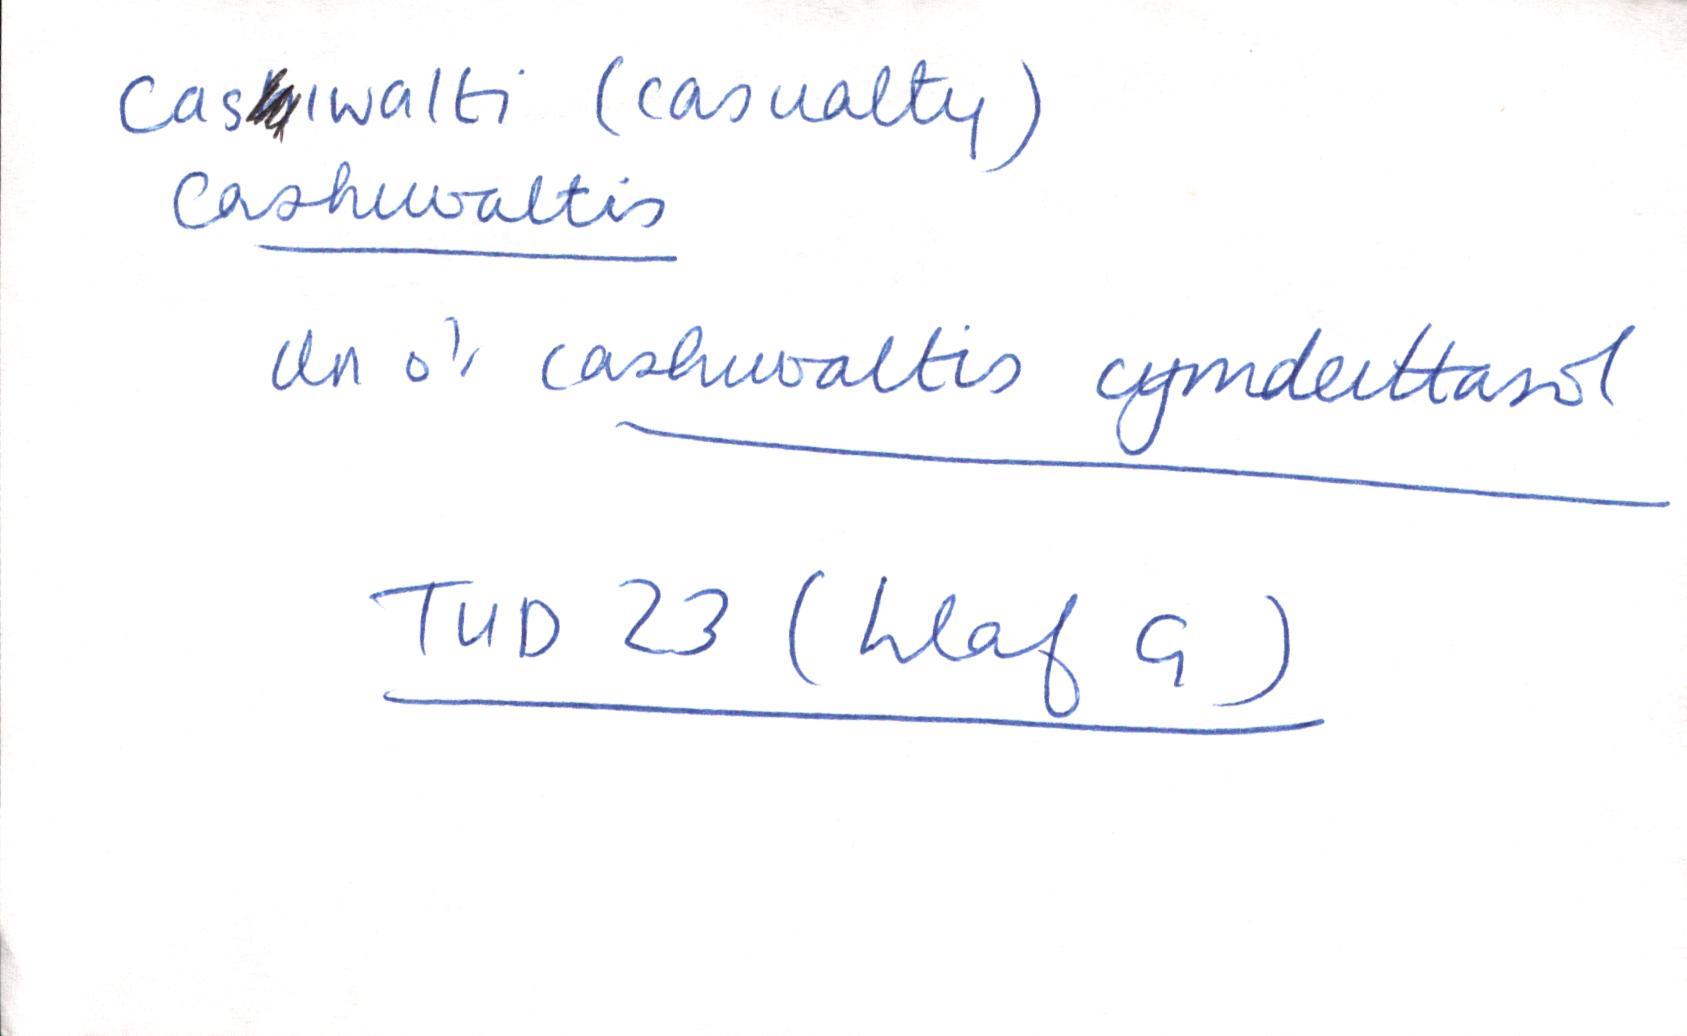 casiwalti (casualty)
Cashiwaltis
Un o'r cashiwaltis cymdeithasol
TUD 23 (hlaf G)